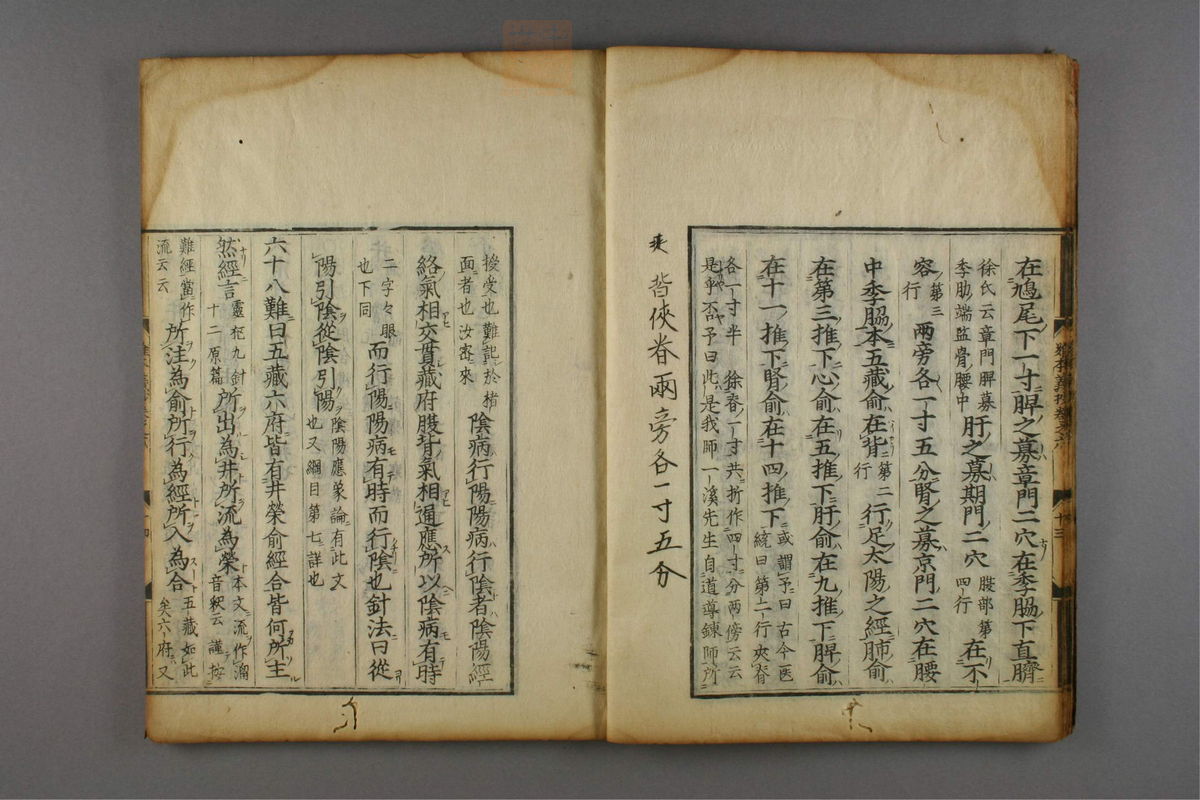 在鳩尾下一寸脾之募章門二穴在季脇下直臍
徐氏云章門脾募
季肋端監骨腰中
肝之募期門二穴
腹部第
四行
在不
容
第三
行
兩旁各一寸五分腎之募京門二穴在腰
中季脇本五藏俞在背
第二
行
行足太陽之經肺俞
在第三推下心俞在五推下肝俞在九推下脾俞
在十一推下腎俞在十四推下
或謂予曰古今医
統曰第二行夾脊
各一寸半 徐春一寸共折作四寸分兩傍云云
是乎否予曰此是我師一溪先生自道導錬師所
夹 皆俠脊兩旁各一寸五分
授受也難記於楮
面者也汝密來
陰病行陽陽病行陰者陰陽經
絡氣相交貫藏府腹背氣相通應所以陰病有時
二字々眼
也下同
而行陽陽病有時而行陰也針法曰從
陽引陰從陰引陽
陰陽應象論有此文
也又綱目第七詳也
六十八難曰五藏六府皆有井榮俞經合皆何所主
然經言
靈樞九針
十二原篇
所出為井所流為榮
本文流作溜
音釈云謹按
難經當作
流云云
所注為俞所行為經所入為合
五藏如此
矣六府又